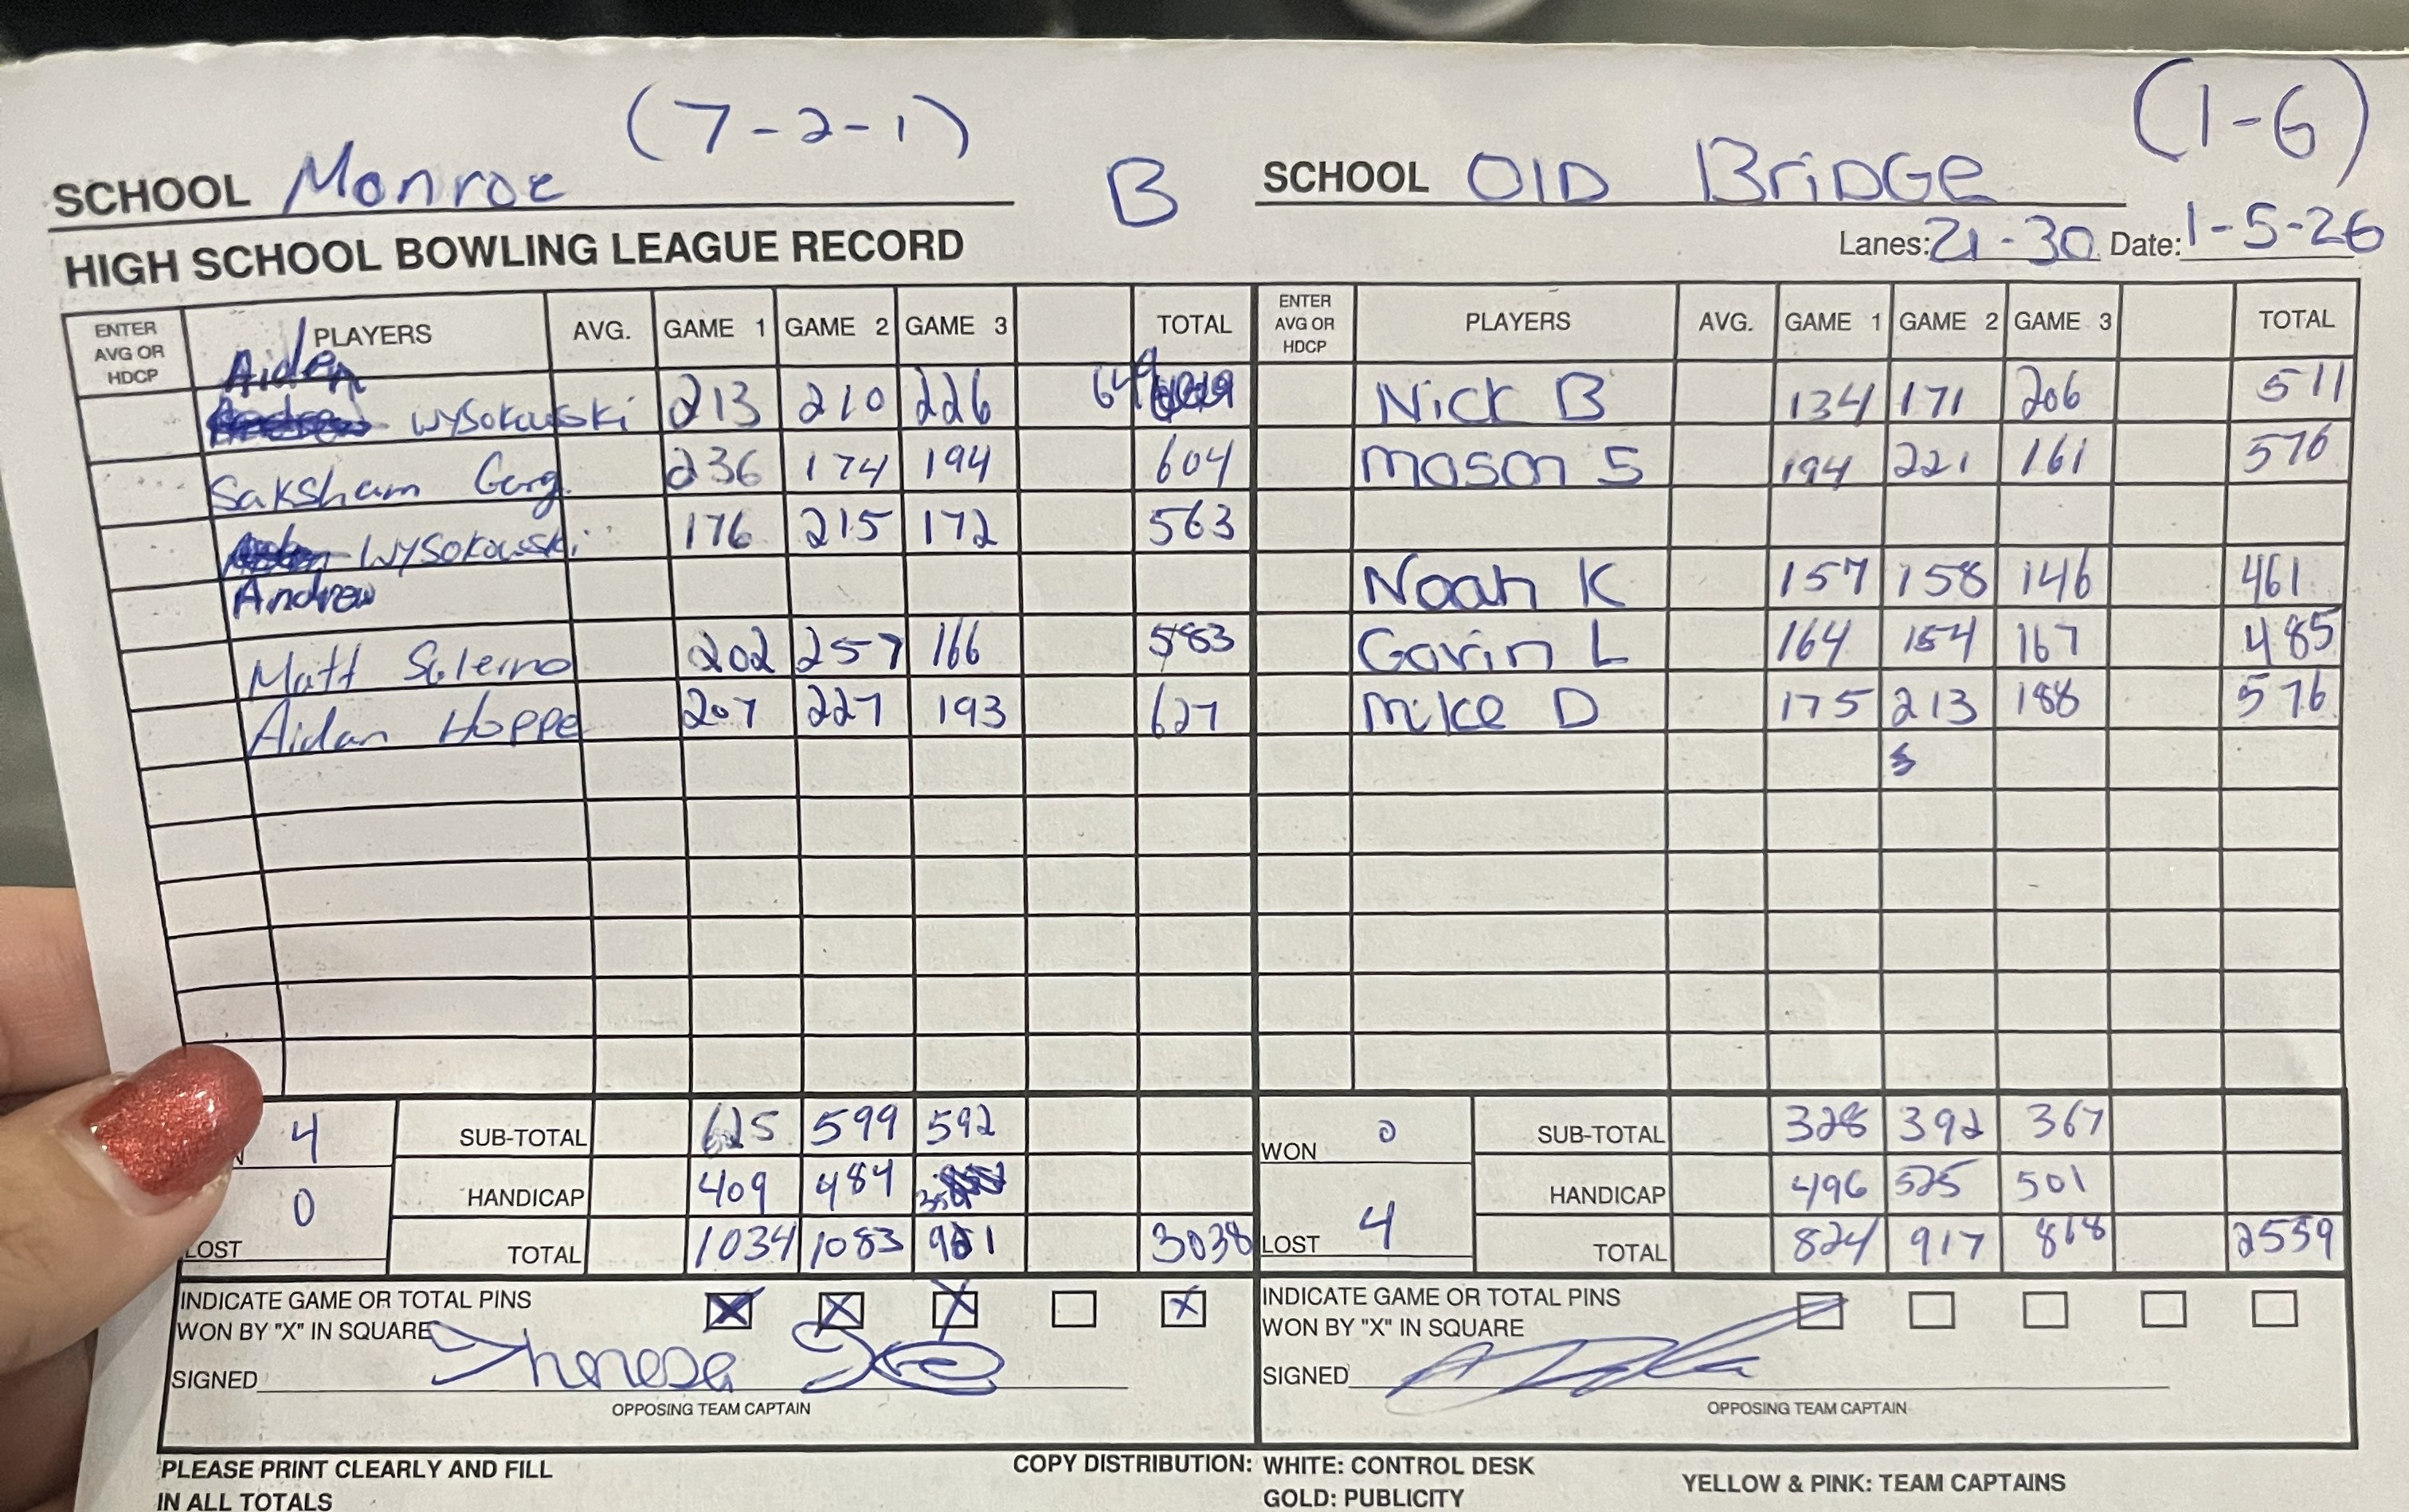 (7-2-1) (1-6)
SCHOOL Monroe B SCHOOL OlD BriDGe
HIGH SCHOOL BOWLING LEAGUE RECORD Lanes: 21-30 Date: 1-5-26
ENTER AVG OR HDCP PLAYERS AVG. GAME 1 GAME 2 GAME 3 TOTAL ENTER AVG OR HDCP PLAYERS AVG. GAME 1 GAME 2 GAME 3 TOTAL
Aiden
Wysokowski 213 210 226 649 Nick B 134 171 206 511
Saksham Garg 236 174 194 604 Mason S 194 221 161 576
Wysokowski 176 215 172 563
Andrew Noah K 157 158 146 461
Matt Salerno 202 257 166 583 Gavin L 164 154 167 485
Aidan Hoppe 207 227 193 627 Mike D 175 213 188 576
4 SUB-TOTAL 625 599 592 WON 0 SUB-TOTAL 328 392 367
HANDICAP 409 484 HANDICAP 496 525 501
LOST 0 TOTAL 1034 1083 951 3038 LOST 4 TOTAL 824 917 868 2559
INDICATE GAME OR TOTAL PINS X X X X INDICATE GAME OR TOTAL PINS
WON BY "X" IN SQUARE WON BY "X" IN SQUARE
SIGNED SIGNED
OPPOSING TEAM CAPTAIN OPPOSING TEAM CAPTAIN
PLEASE PRINT CLEARLY AND FILL COPY DISTRIBUTION: WHITE: CONTROL DESK YELLOW & PINK: TEAM CAPTAINS
IN ALL TOTALS GOLD: PUBLICITY